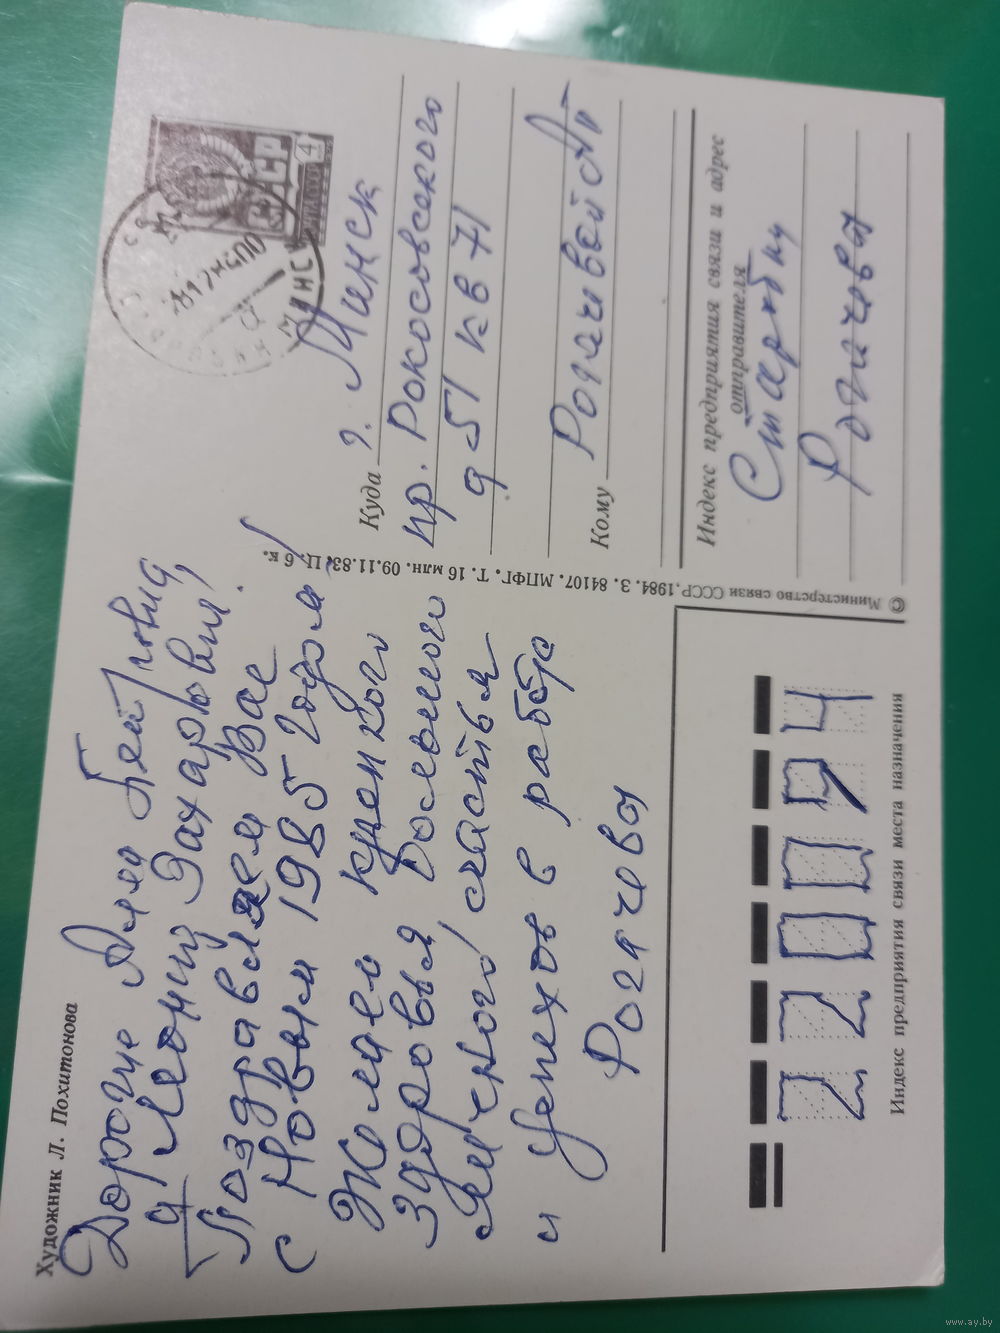 Художник Л. Похитонова
Дорогие Алла
и Леонид Захарович!
Поздравляем Вас
с Новым 1985 годом!
Желаем крепкого
здоровья большого
личного счастья
и успехов в работе
Рогачевы
© Министерство связи СССР, 1984. З. 84107. МПФГ. Т. 16 млн. 09.11.83. Ц. 6 к.
СССР
ПОЧТА
4
МИНСК
Куда г. Минск
пр. Рокосовского
д 51 кв 71
Кому Рогачевой АП
Индекс предприятия связи и адрес
отправителя
Рогачевы
220094
Индекс предприятия связи места назначения
www.ay.by